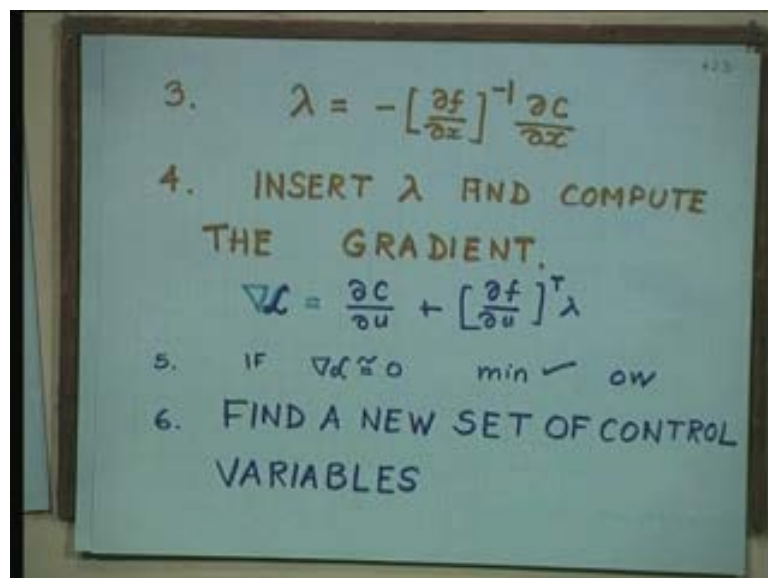 3. λ = -[∂f/∂x]⁻¹ ∂C/∂x
4. INSERT λ AND COMPUTE
THE GRADIENT.
∇ℒ = ∂C/∂u + [∂f/∂u]ᵀλ
5. IF ∇ℒ ≅ 0 min ✓ OW
6. FIND A NEW SET OF CONTROL
VARIABLES